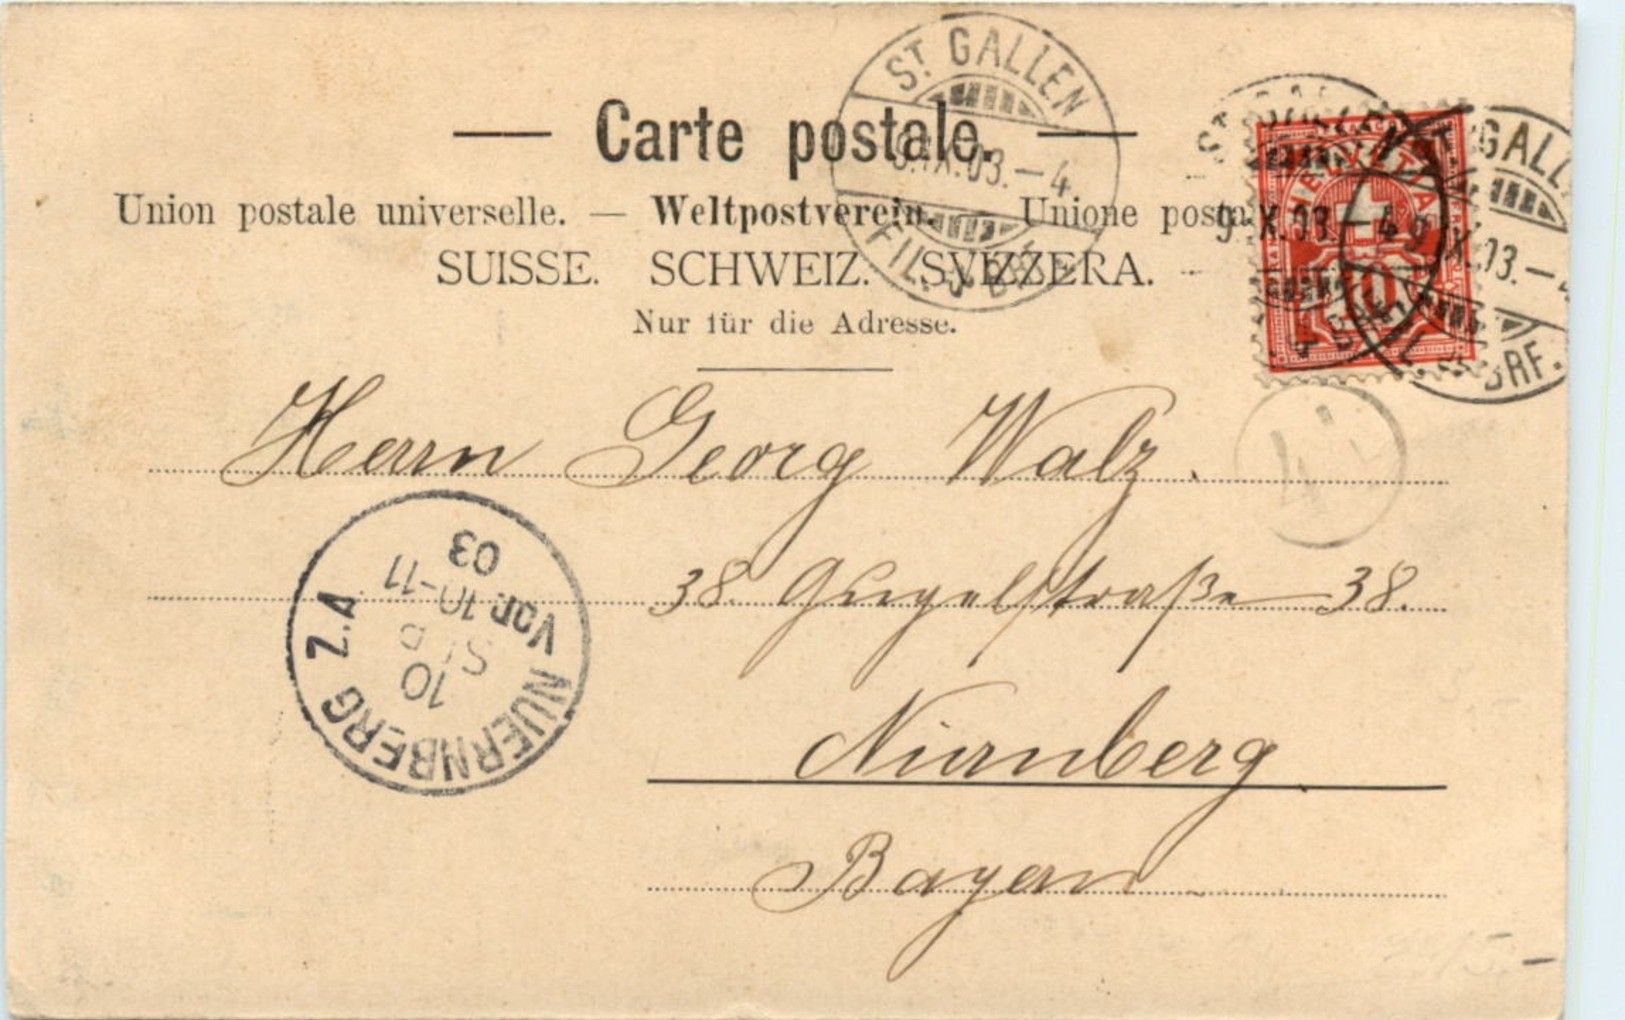 Carte postale.
Union postale universelle. — Weltpostverein. Unione posta
SUISSE. SCHWEIZ. SVIZZERA.
Nur für die Adresse.
ST. GALLEN
9.IX.03.–4
FIL.
ST. GALLEN
9. X.03.–4
GALL
9 IX.03.–4
HELVETIA
10
Herrn Georg Walz.
38. Gugelstraße 38.
Nürnberg
Bayern
NUERNBERG Z.A.
10
SEP
Vor. 10-11
03
4